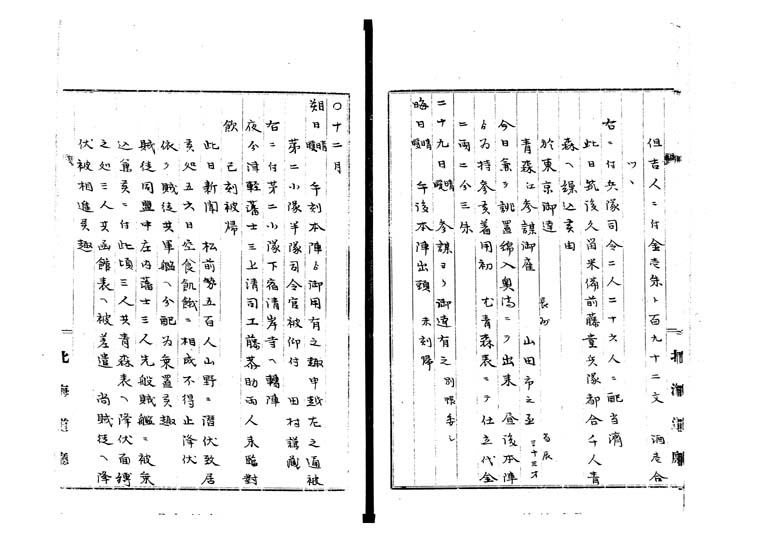 但吉人ニ付金壱朱ト百九十二文 酒壱合
ツヽ
右ニ付兵隊司令二人二十六人ニ配当済
此日筑後久留米備前藤堂兵隊都合千人青
森ヘ繰込候由
於東京御達
青森江参謀御雇 長州 山田市之丞 当辰二十三才
今日兼ヨリ誂置綿入奥満ニヲ出来 昼後本陣
ゟ為持参候着用初 尤青森表ニテ仕立代金
二両二分三朱
二十九日 晴暖 参謀ヨリ御達有之 別帳委し
晦日 晴暖 午後本陣出頭 未刻帰
〇十二月
朔日 晴暖 午刻本陣ゟ御用有之趣申越左之通被
第二小隊半隊司令官被仰付 田村
右ニ付第二小隊下宿清岸寺ヘ転陣
夜今津軽藩士三上清司工藤 助両人来臨対
飲 已刻被帰
此日新聞 松前勢五百人山野ニ潜伏致居
候処五六日空食飢餓ニ相成不得止降伏
依テ賊徒共軍艦ヘ分配為乗置候趣
賊徒同盟中庄内藩士三人先般賊艦ニ被乗
込候ニ付此頃三人共青森表ヘ降伏面縛
之処三人共函館表ヘ被差遣 尚賊徒ヘ降
伏被相進候趣
北海道庁
北海道庁